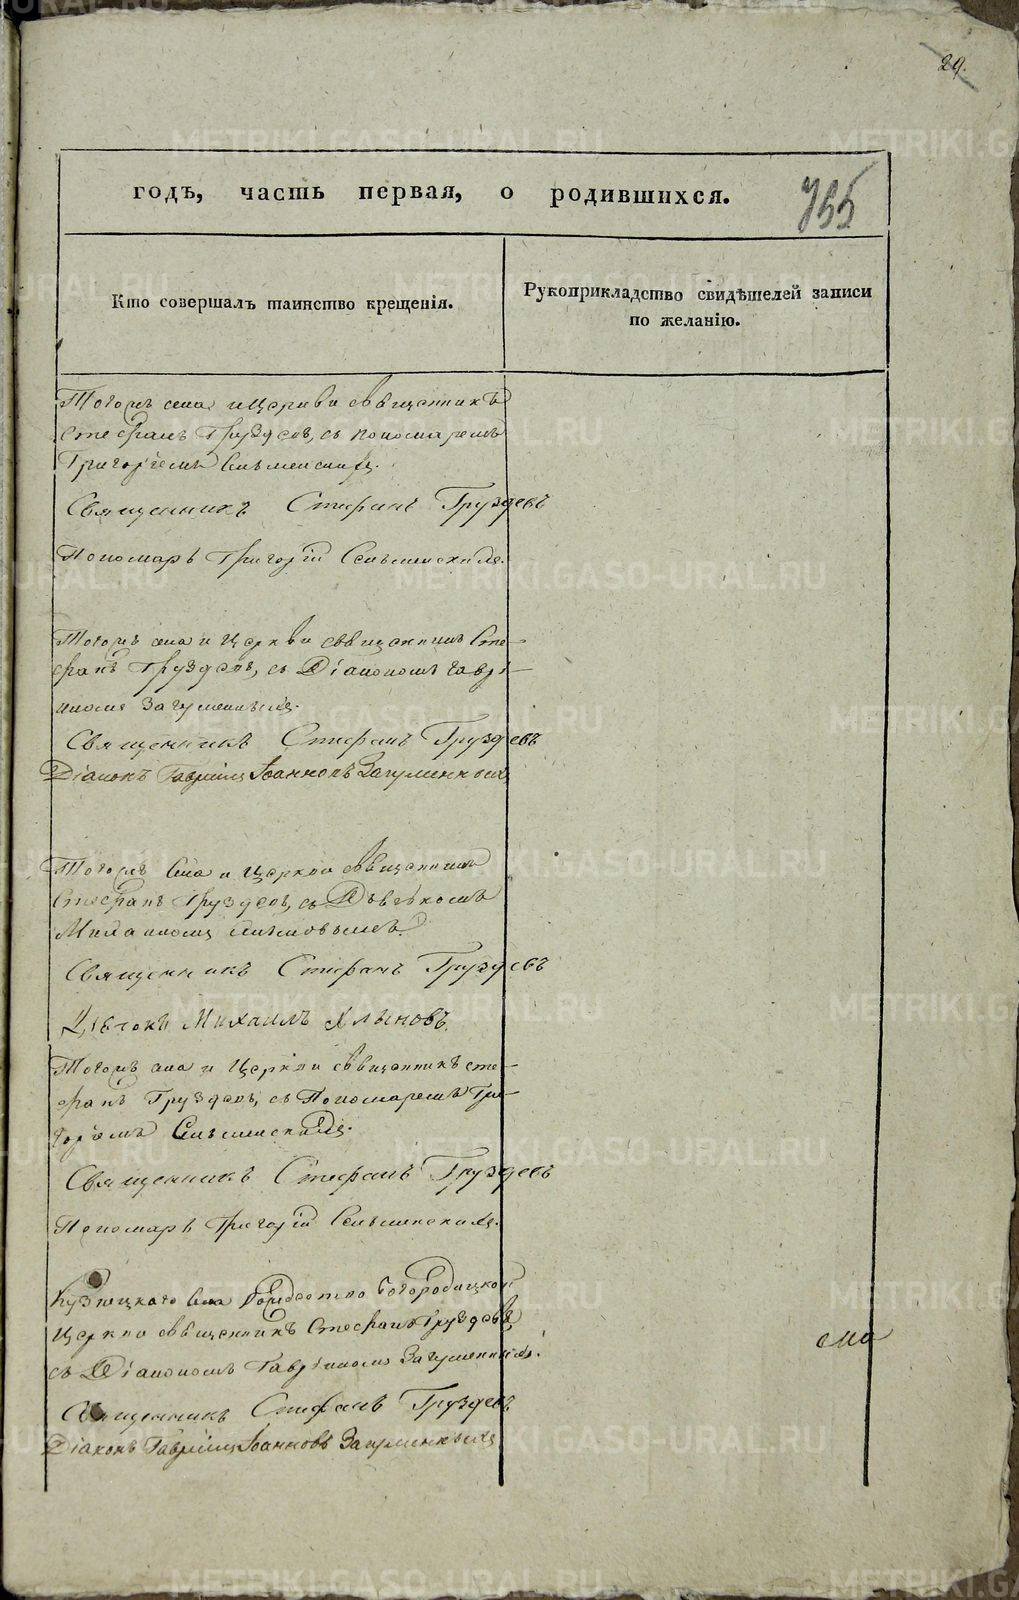 29.
годъ, часть первая, о родившихся.
755
Кто совершалъ таинство крещенія.
Рукоприкладство свидѣтелей записи
по желанію.
Тогожъ села и Церкви священникъ
Стефанъ Груздевъ, съ пономаремъ
Григоріемъ
Священникъ Стефанъ Груздевъ
Пономарь Григорій
Тогожъ села и Церкви священникъ Сте-
фанъ Груздевъ, съ Діакономъ Гаврі-
иломъ Загуменныхъ.
Священникъ Стефанъ Груздевъ
Діаконъ Гавріилъ Іоанновъ Загуменныхъ
Тогожъ села и Церкви священникъ
Стефанъ Груздевъ, съ Дьячкомъ
Михаиломъ Хлыновымъ.
Священникъ Стефанъ Груздевъ
Дьячокъ Михаилъ Хлыновъ.
Тогожъ села и Церкви священникъ Сте-
фанъ Груздевъ, съ Пономаремъ Гри-
горіемъ
Священникъ Стефанъ Груздевъ
Пономарь Григорій
Кузнецкаго села Рождество Богородицкой
Церкви священникъ Стефанъ Груздевъ,
съ Діакономъ Гавріиломъ Загуменныхъ.
Священникъ Стефанъ Груздевъ
Діаконъ Гавріилъ Іоанновъ Загуменныхъ
METRIKI.GASO-URAL.RU